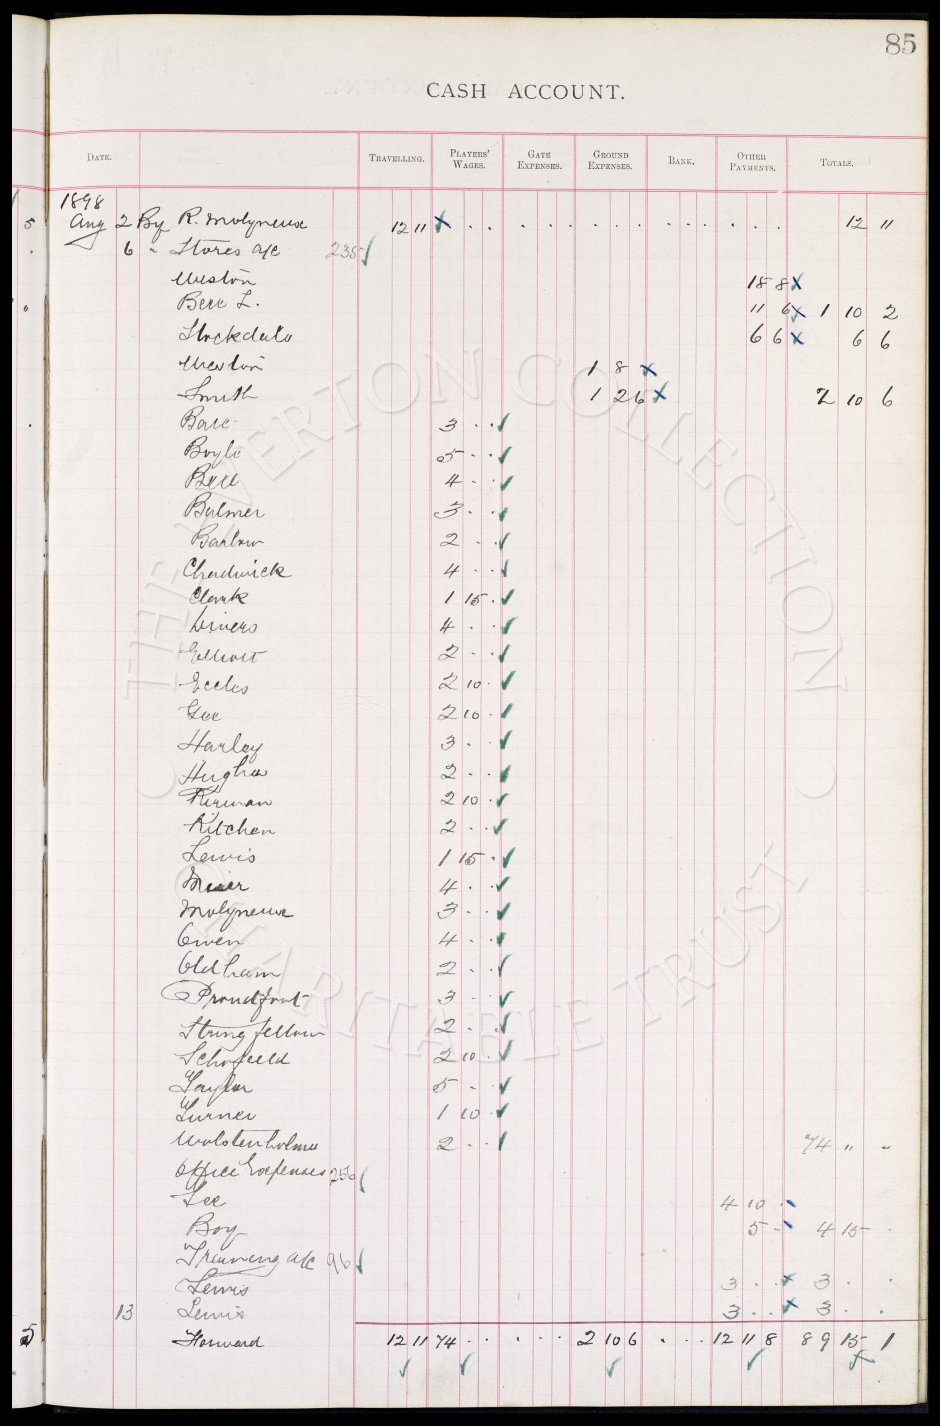 85
CASH ACCOUNT.
DATE. TRAVELLING. PLAYERS' WAGES. GATE EXPENSES. GROUND EXPENSES. BANK. OTHER PAYMENTS. TOTALS.
1898
Aug 2 By R. Molyneux 12 11 12 11
6 " Stores a/c 235
Weston 18 8
Bell L. 11 6 1 10 2
Stockdale 6 6 6 6
Weston 1 8
Smith 1 2 6 2 10 6
Barr 3 . .
Boyle 5 . .
Bell 4 . .
Balmer 3 . .
Barlow 2 . .
Chadwick 4 . .
Clark 1 15 .
Divers 4 . .
Elliott 2 . .
Eccles 2 10 .
Gee 2 10 .
Harley 3 . .
Hughes 2 . .
Kirwan 2 10 .
Kitchen 2 . .
Lewis 1 15 .
Meier 4 . .
Molyneux 3 . .
Owen 4 . .
Oldham 2 . .
Proudfoot 3 . .
Stringfellow 2 . .
Schofield 2 10 .
Taylor 5 . .
Turner 1 10 .
Wolstenholme 2 . . 74 " "
Office Expenses 256
Lee 4 10 .
Boy 5 . 4 15 .
Training a/c 96
Lewis 3 . . 3 . .
13 Lewis 3 . . 3 . .
5 Forward 12 11 74 . . . . . 2 10 6 . . . 12 11 8 89 15 1
THE EVERTON COLLECTION
CHARITABLE TRUST